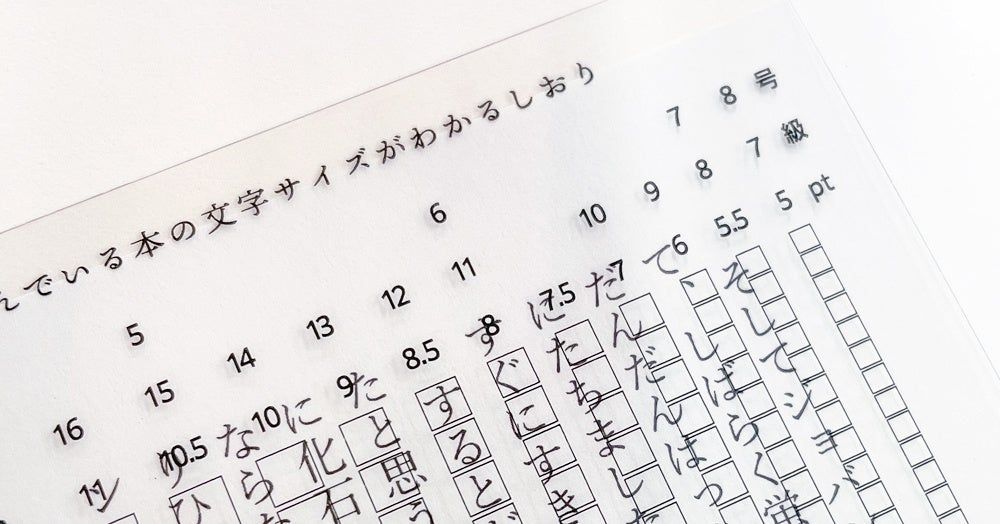 んでいる本の文字サイズがわかるしおり
5 6 7 8 号
16 15 14 13 12 11 10 9 8 7 級
11 10.5 10 9 8.5 8 7.5 7 6 5.5 5 pt
そしてジョバ
て、しばらく蛍
だんだんはっ
にたちました
すぐにすき
するとど
たと思う
に化石
なら
ひ